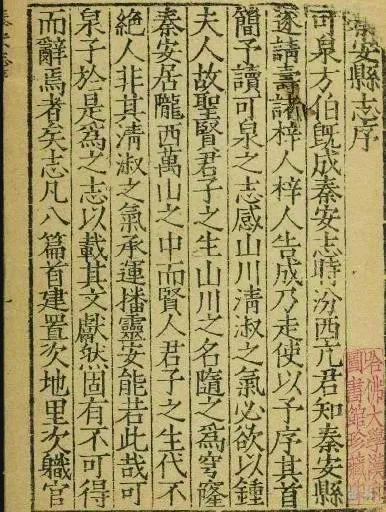 秦安縣志序
可泉方伯旣成秦安志時汾西亢君知秦安縣
遂請壽諸梓人梓人告成乃走使以予序其首
簡予讀可泉之志感山川淸淑之氣必欲以鍾
夫人故聖賢君子之生山川之名隨之爲穹窿
秦安居隴西萬山之中而賢人君子之生代不
絕人非其淸淑之氣承運播靈安能若此哉可
泉子於是爲之志以載其文獻然固有不可得
而辭焉者矣志凡八篇首建置次地里次軄官
哈佛大學
圖書館珍藏